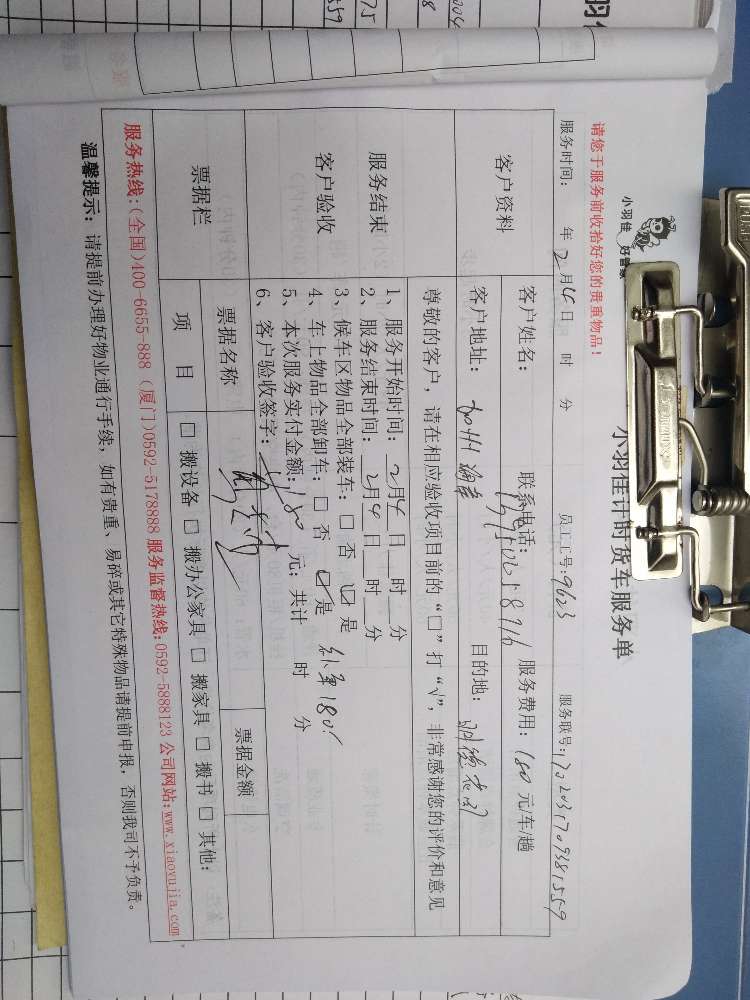 小羽佳 好管家
小羽佳计时货车服务单
请您于服务前收拾好您的贵重物品！
服务时间： 年 2月4日 时 分 员工工号：9623 服务联号：1702031709381559
客户资料
客户姓名： 联系电话： 服务费用：180元/车/趟
客户地址： 目的地：
尊敬的客户，请在相应验收项目前的“□”打“√”，非常感谢您的评价和意见
服务结束
客户验收
1、服务开始时间：2月4日 时 分
2、服务结束时间：2月4日 时 分
3、候车区物品全部装车：□ 否 ☑ 是
4、车上物品全部卸车：□ 否 ☑ 是
5、本次服务实付金额：180 元；共计 时 分
6、客户验收签字：
票据栏
票据名称 票据金额
项 目 □ 搬设备 □ 搬办公家具 □ 搬家具 □ 搬书 □ 其他：
服务热线：(全国)400-6655-888 (厦门)0592-5178888 服务监督热线：0592-5888123 公司网站：www.xiaoyujia.com
温馨提示：请提前办理好物业通行手续，如有贵重、易碎或其它特殊物品请提前申报，否则我司不予负责。